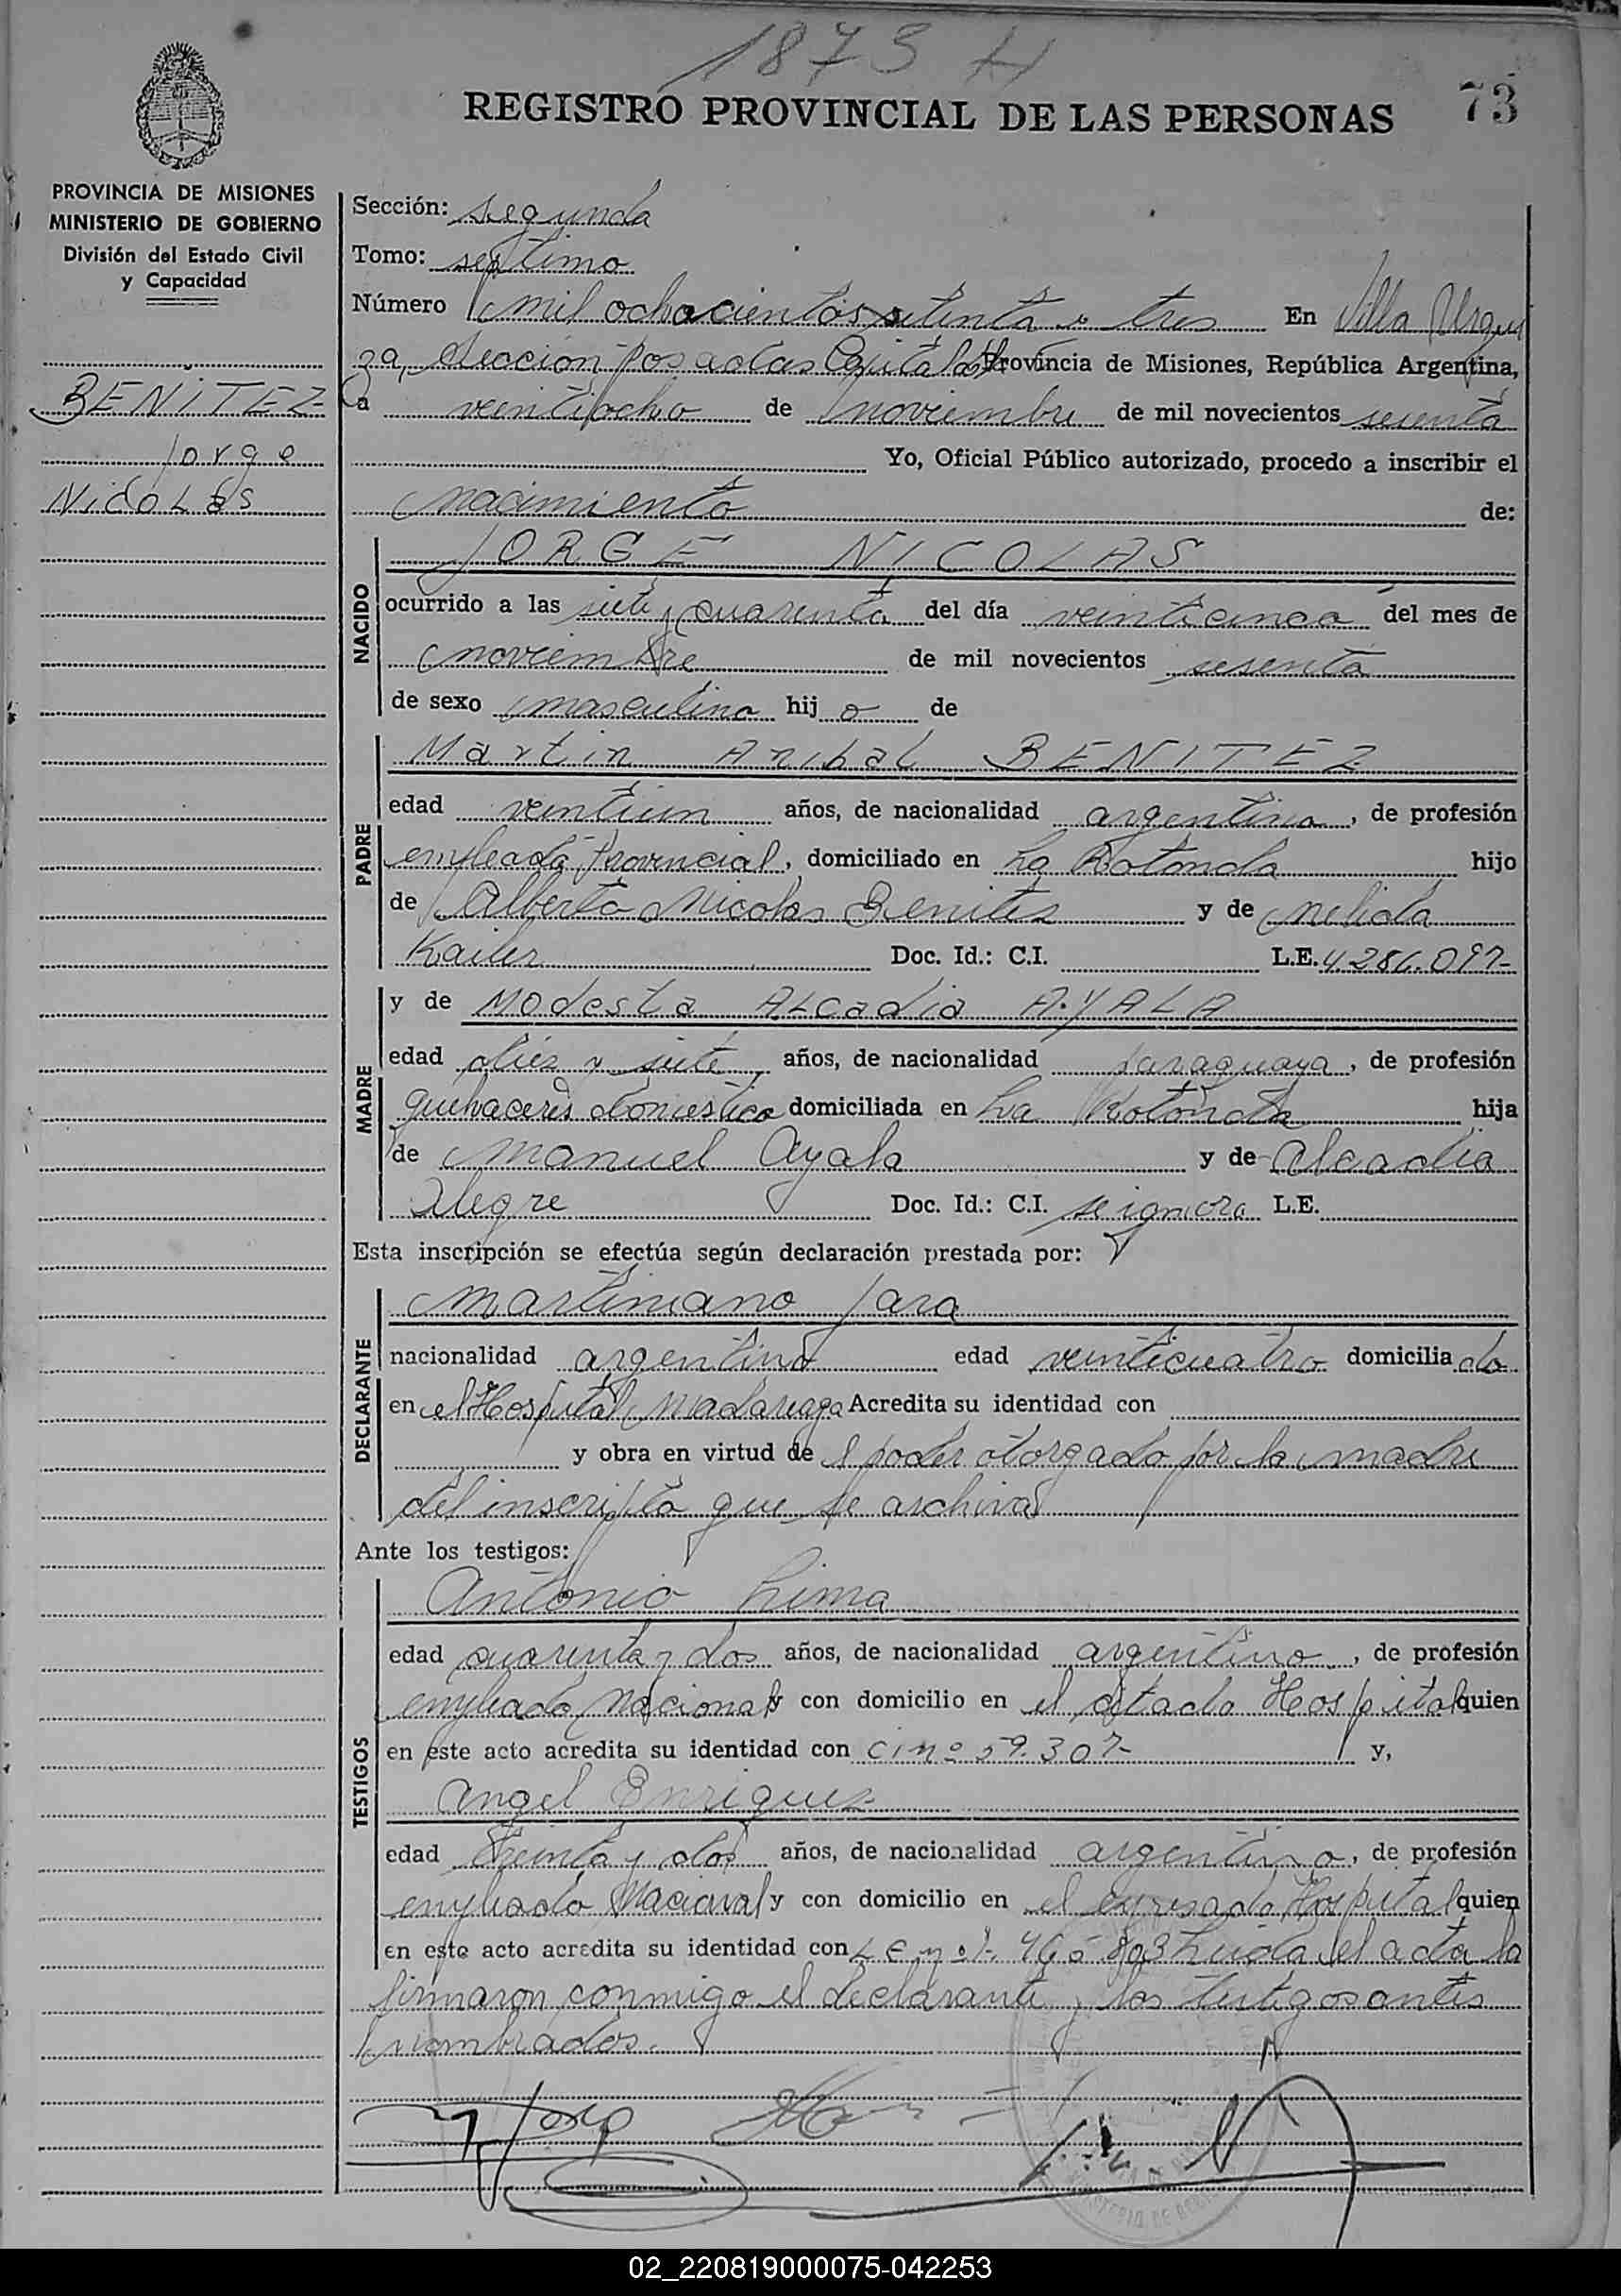 1873 H
73
REGISTRO PROVINCIAL DE LAS PERSONAS
PROVINCIA DE MISIONES
MINISTERIO DE GOBIERNO
División del Estado Civil
y Capacidad
BENITEZ
Jorge
Nicolás
Sección: segunda
Tomo: septimo
Número mil ochocientos setenta y tres En Villa Urqui
za, Sección Posadas Capital Provincia de Misiones, República Argentina,
a veintiocho de noviembre de mil novecientos sesenta
Yo, Oficial Público autorizado, procedo a inscribir el
nacimiento de:
NACIDO
JORGE NICOLAS
ocurrido a las siete y cuarenta del día veinticinco del mes de
noviembre de mil novecientos sesenta
de sexo masculino hijo de
PADRE
Martin Anibal BENITEZ
edad veintiun años, de nacionalidad argentino, de profesión
empleado Provincial, domiciliado en La Rotonda hijo
de Alberto Nicolas Benitez y de Nelida
Kailer Doc. Id.: C.I. L.E. 4.286.097-
MADRE
y de Modesta ALcadia AYALA
edad diez y siete años, de nacionalidad paraguaya, de profesión
quehaceres domestico domiciliada en La Rotonda hija
de Manuel Ayala y de Alcadia
Alegre Doc. Id.: C.I. se ignora L.E.
Esta inscripción se efectúa según declaración prestada por:
DECLARANTE
Martiniano Jara
nacionalidad argentino edad veinticuatro domiciliado
en el Hospital Madariaga Acredita su identidad con
y obra en virtud de l poder otorgado por la madre
del inscripto que se archiva
Ante los testigos:
TESTIGOS
Antonio Lima
edad cuarenta y dos años, de nacionalidad argentino, de profesión
empleado Nacional y con domicilio en el citado Hospital quien
en este acto acredita su identidad con CI Nº 59.307- y,
Angel Enriquez
edad treinta y dos años, de nacionalidad argentino, de profesión
empleado Nacional y con domicilio en el expresado Hospital quien
en este acto acredita su identidad con L E nº Leida el acta la
firmaron conmigo el declarante y los testigos antes
nombrados.
02_220819000075-042253